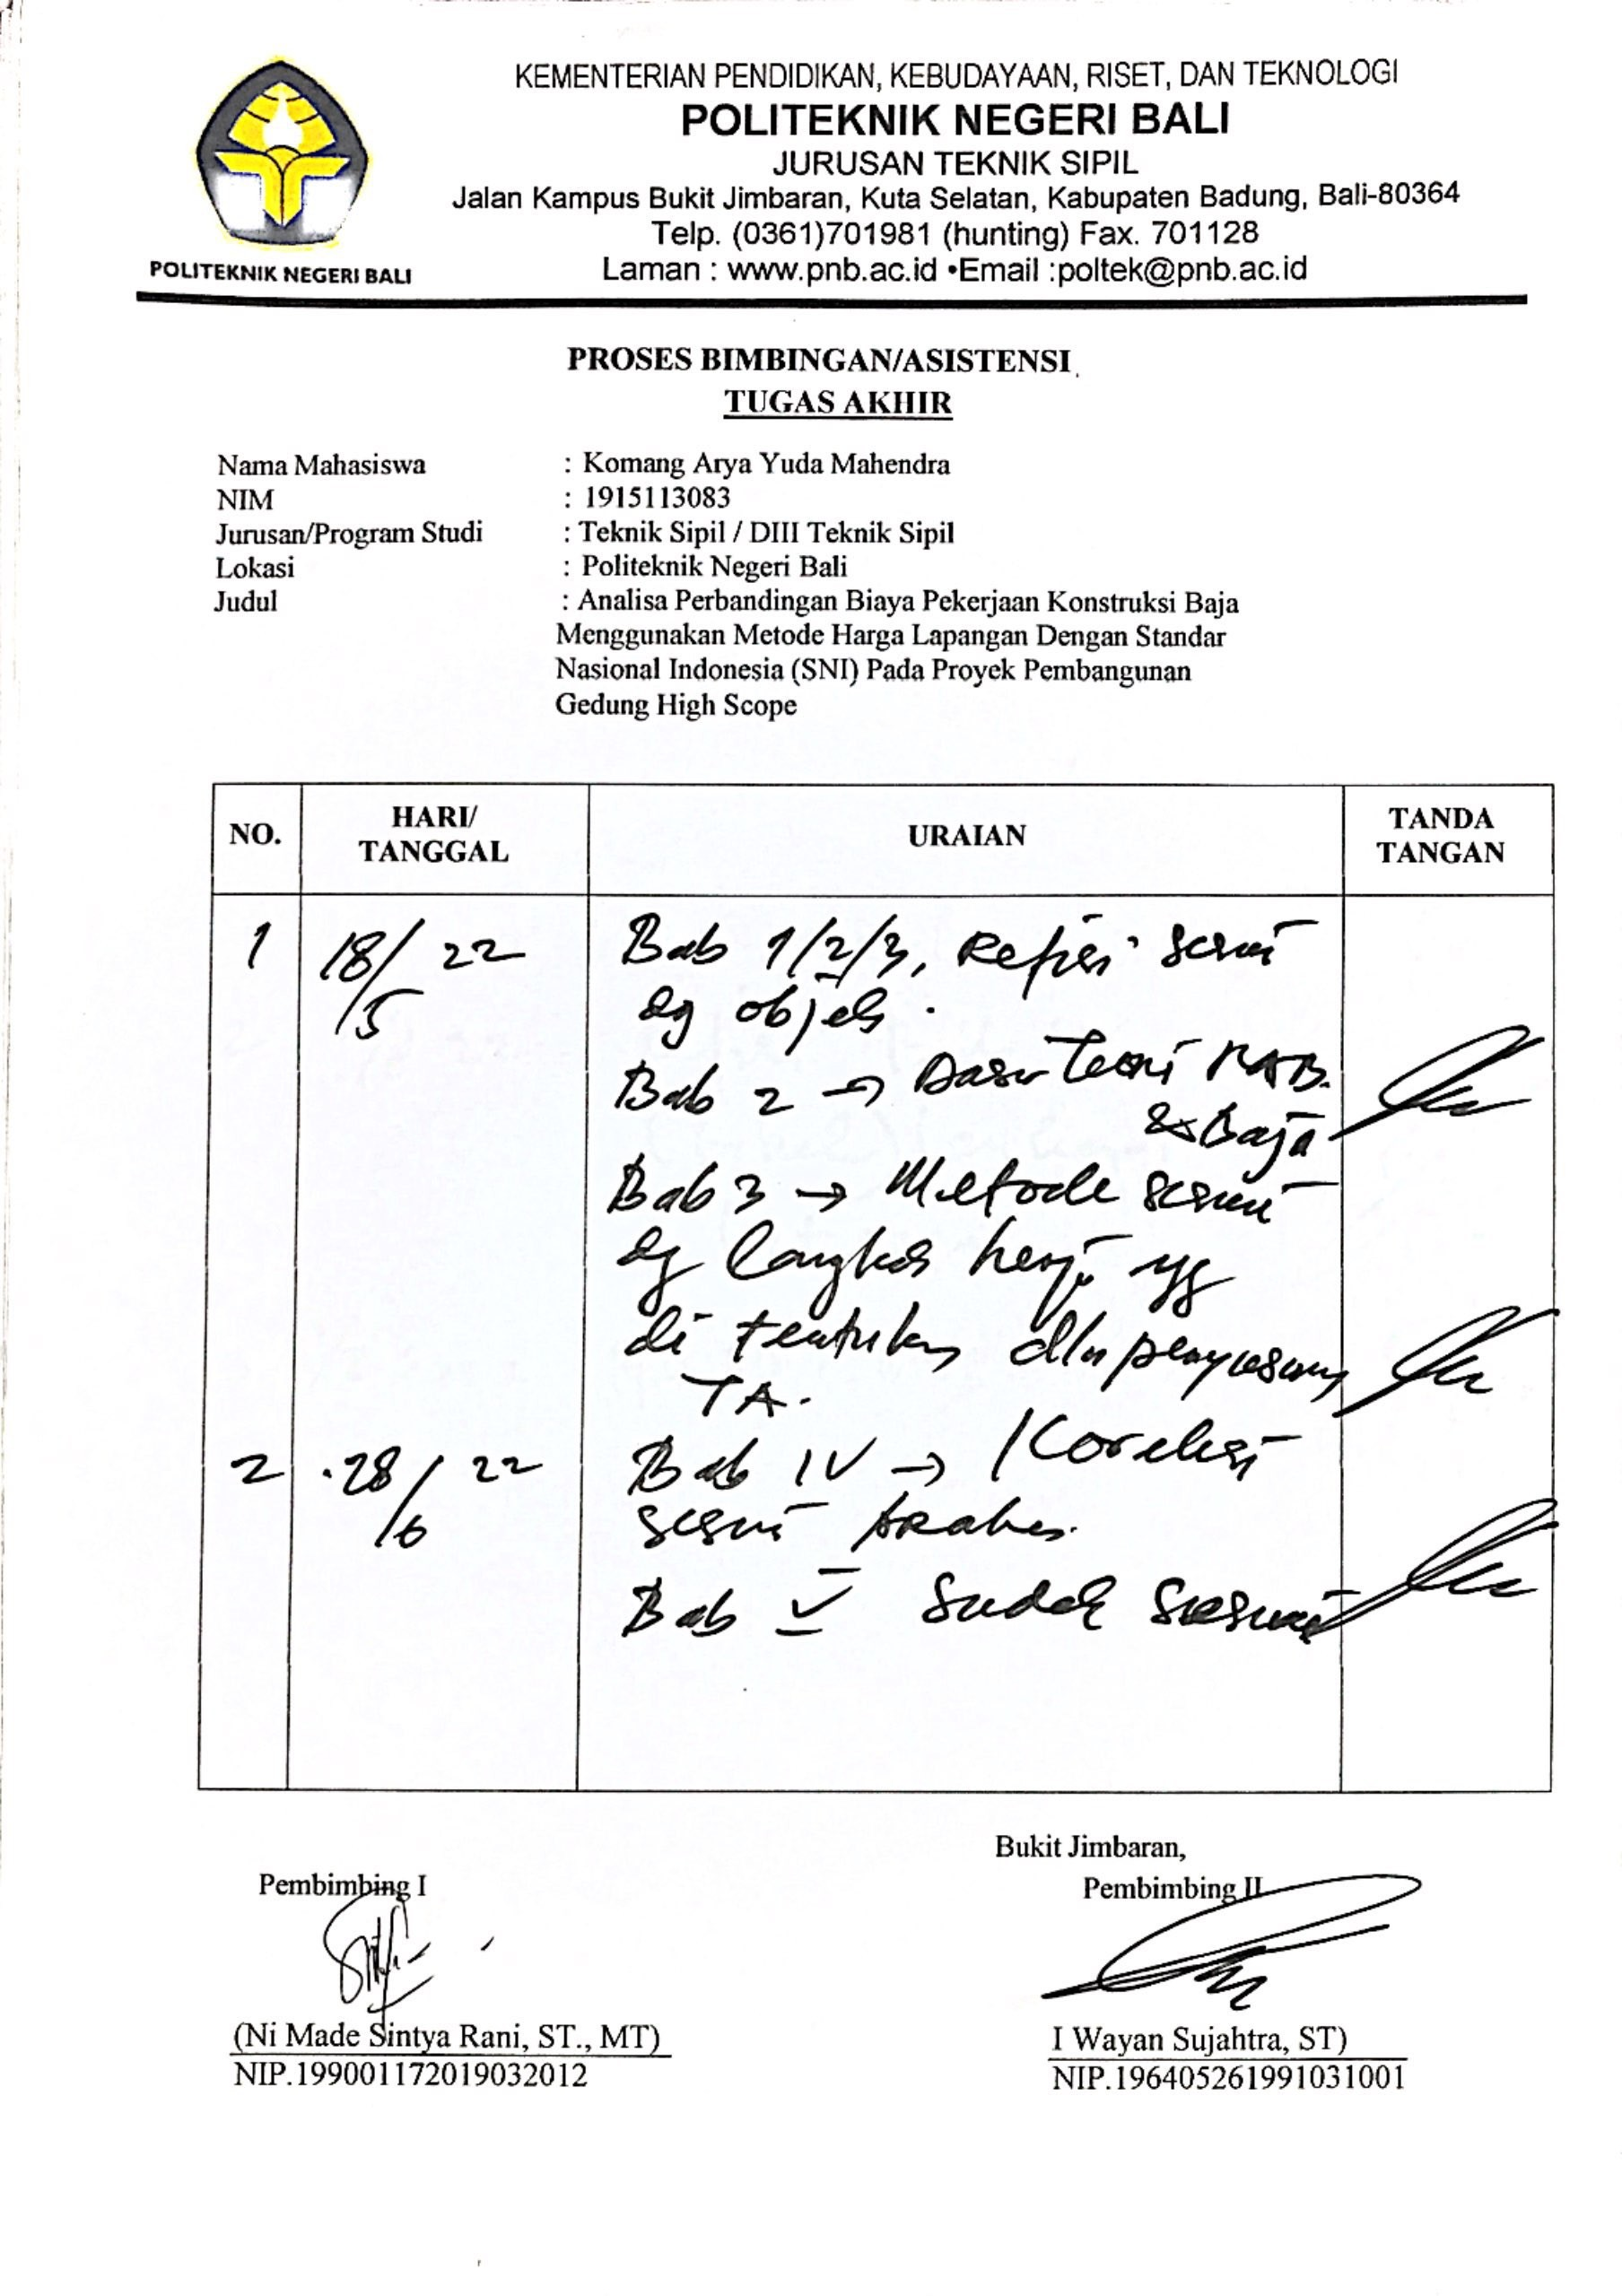 KEMENTERIAN PENDIDIKAN, KEBUDAYAAN, RISET, DAN TEKNOLOGI
POLITEKNIK NEGERI BALI
JURUSAN TEKNIK SIPIL
Jalan Kampus Bukit Jimbaran, Kuta Selatan, Kabupaten Badung, Bali-80364
Telp. (0361)701981 (hunting) Fax. 701128
Laman : www.pnb.ac.id •Email :poltek@pnb.ac.id
POLITEKNIK NEGERI BALI
PROSES BIMBINGAN/ASISTENSI
TUGAS AKHIR
Nama Mahasiswa : Komang Arya Yuda Mahendra
NIM : 1915113083
Jurusan/Program Studi : Teknik Sipil / DIII Teknik Sipil
Lokasi : Politeknik Negeri Bali
Judul : Analisa Perbandingan Biaya Pekerjaan Konstruksi Baja
Menggunakan Metode Harga Lapangan Dengan Standar
Nasional Indonesia (SNI) Pada Proyek Pembangunan
Gedung High Scope
NO. HARI/ TANGGAL URAIAN TANDA TANGAN
1 18/5 22 Bab 1/2/3, Refisi sesuai
dg objek.
Bab 2 → Dasar Teori RAB.
& Baja
Bab 3 → Metode sesuai
dg langkah kerja yg
di tentukan dlm penyusunan
TA.
2 28/6 22 Bab IV → Koreksi
sesuai Arahan.
Bab V Sudah sesuai
Bukit Jimbaran,
Pembimbing I Pembimbing II
(Ni Made Sintya Rani, ST., MT) I Wayan Sujahtra, ST)
NIP.199001172019032012 NIP.196405261991031001